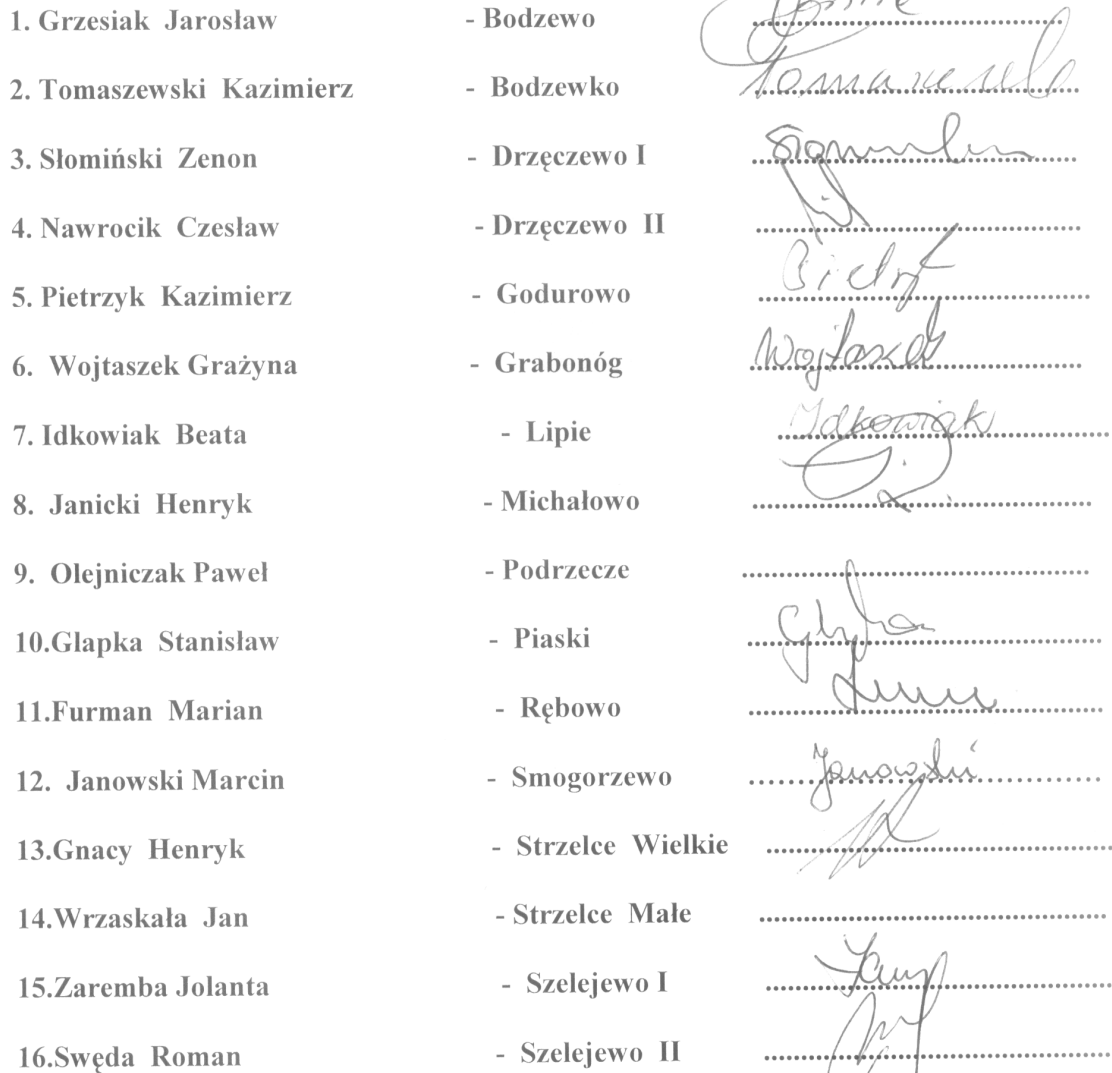 1. Grzesiak Jarosław - Bodzewo
2. Tomaszewski Kazimierz - Bodzewko
3. Słomiński Zenon - Drzęczewo I
4. Nawrocik Czesław - Drzęczewo II
5. Pietrzyk Kazimierz - Godurowo
6. Wojtaszek Grażyna - Grabonóg Wojtaszek
7. Idkowiak Beata - Lipie Idkowiak
8. Janicki Henryk - Michałowo
9. Olejniczak Paweł - Podrzecze
10.Glapka Stanisław - Piaski
11.Furman Marian - Rębowo
12. Janowski Marcin - Smogorzewo Janowski
13.Gnacy Henryk - Strzelce Wielkie
14.Wrzaskała Jan - Strzelce Małe
15.Zaremba Jolanta - Szelejewo I
16.Swęda Roman - Szelejewo II